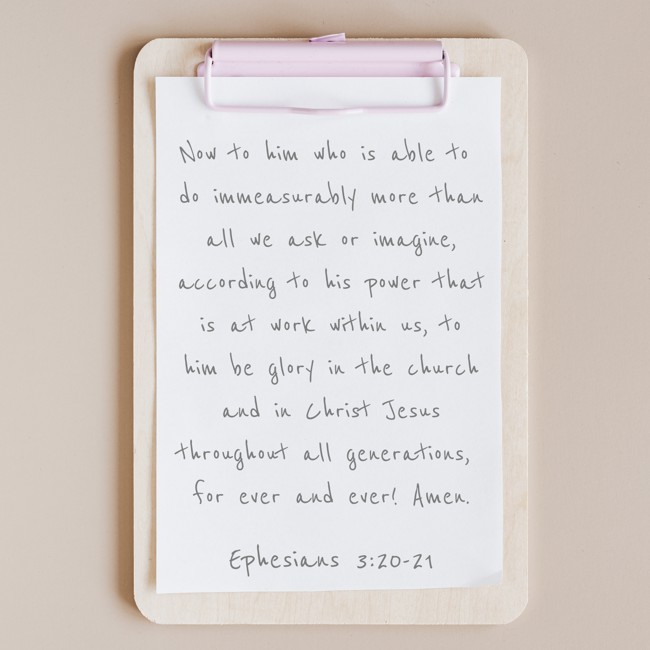 Now to him who is able to
do immeasurably more than
all we ask or imagine,
according to his power that
is at work within us, to
him be glory in the church
and in Christ Jesus
throughout all generations,
for ever and ever! Amen.
Ephesians 3:20-21